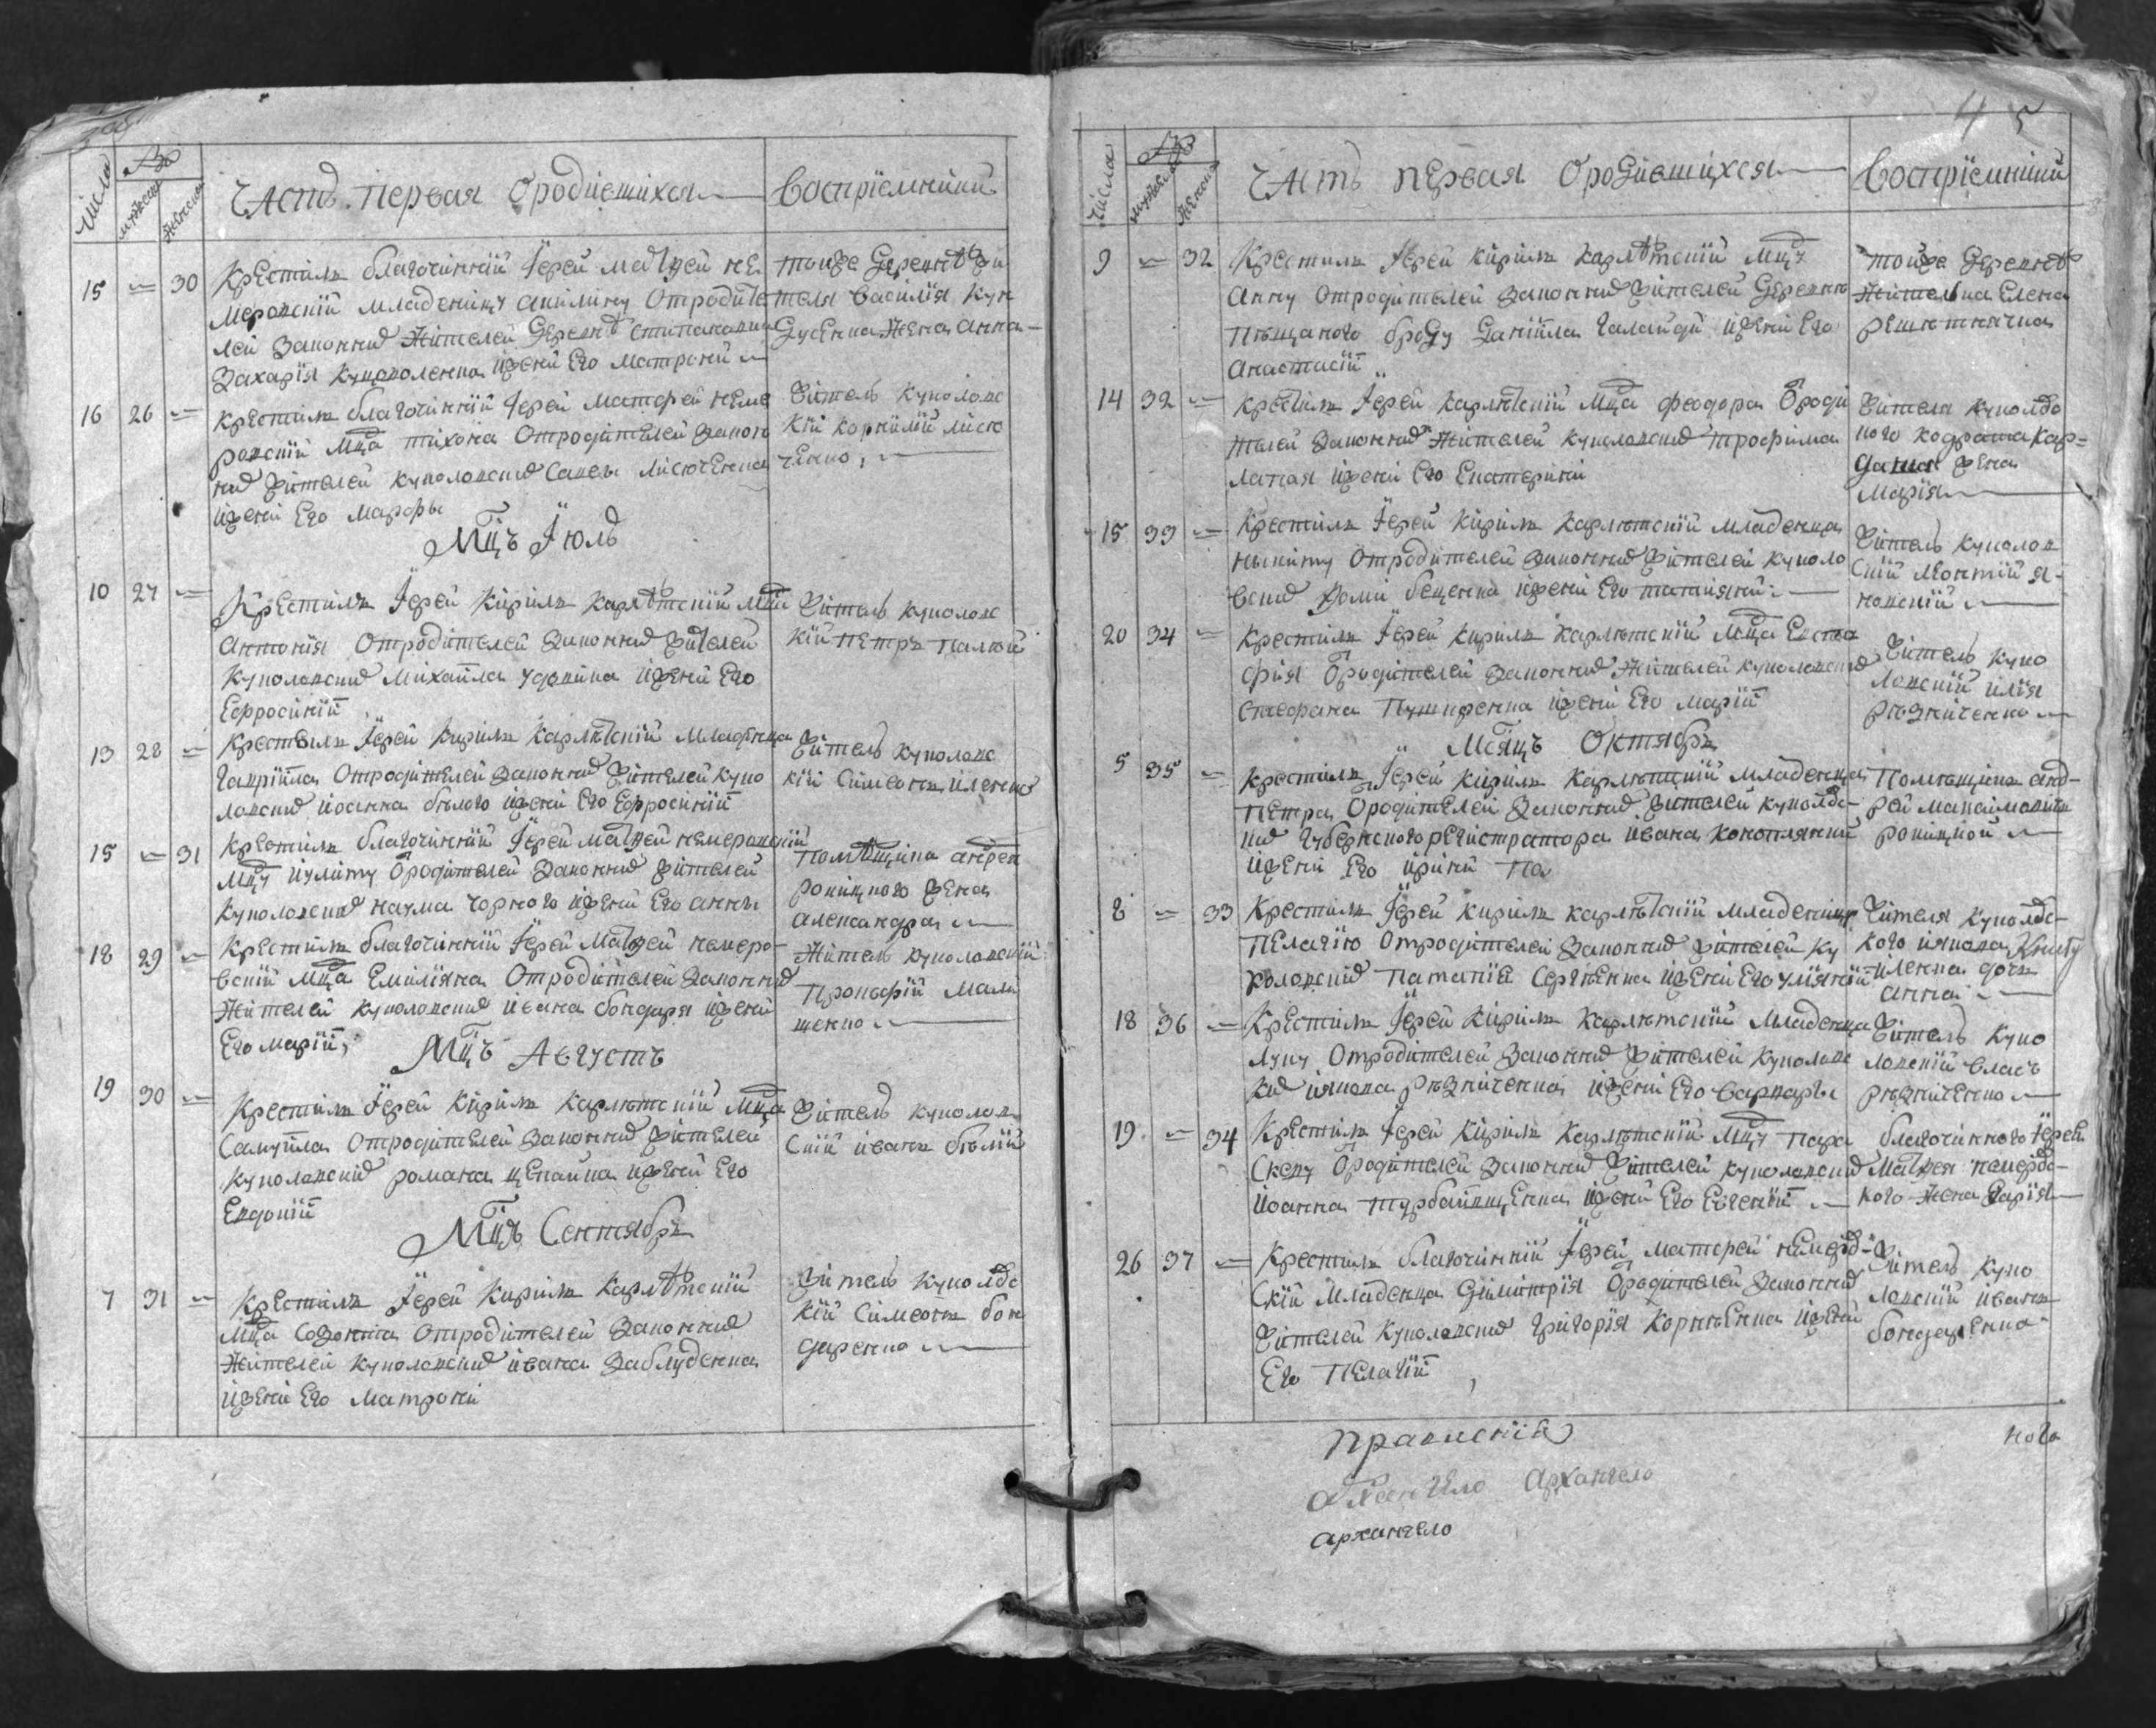 Числа
мужеска
женска
Часть первая ородившихся
Воспріемники
15 30 Крестилъ благочинній Іерей Матѳей Не
меровскій младеницу Акилину отродите
лей законнихъ жителей деревнѣ
Захарія ижени Его Матрони
тояже деревнѣ жи
теля Василія Кун
дусенка жена Анна
16 26 Крестилъ благочинній Іерей Матфей Неме
ровскій мца Тихона отродителей закон
нихъ жителей куполовскихъ Савы Лисюченка
ижени Его Марфы
Житель куполовс
кій Корнилій Лисю
ченко
Мцъ Іюль
10 27 Крестилъ Іерей Кирилъ Карлѣтскій мца
Антонія отродителей законнихъ жителей
куполовскихъ Михаила Удовика ижени Его
Ефросиніи
Житель куполовс
кій Петръ Палюй
13 28 Крестилъ Іерей Кирилъ Карлѣтскій младенца
Гавріила отродителей законнихъ жителей купо
ловскихъ Иоанна Бѣлого ижени Его Ефросиніи
Житель куполовс
кій Симеонъ Иленко
15 31 Крестилъ благочинній Іерей Матѳей Немеровскій
мцу Иулиту ородителей законнихъ жителей
куполовскихъ Наума Чорного ижени Его Анны
Помѣщика Андрея
жена
Александра
18 29 Крестилъ благочинній Іерей Матѳей Немеро
вскій мца Емиліяна отродителей законнихъ
жителей куполовскихъ Ивана Бондаря ижени
Его Маріи
Житель куполовскій
Прокофій Мали
щенко
Мцъ Августъ
19 30 Крестилъ Іерей Кирилъ Карлѣтскій мца
Самуила отродителей законнихъ жителей
куполовскихъ Романа ижени Его
Евдокіи
Житель куполов
скій Иванъ Бѣлій
Мцъ Сентябръ
7 31 Крестилъ Іерей Кирилъ Карлѣтскій
мца Созонта отродителей законнихъ
жителей куполовскихъ Ивана Заблуденка
ижени Его Матрони
Житель куполовс
кій Симеонъ Бон
даренко
4 5
Числа
мужеска
женска
Часть первая ородившихся
Воспріемники
9 32 Крестилъ Іерей Кирилъ Карлѣтскій мцу
Анну отродителей законнихъ жителей деревнѣ
Пѣщаного Броду Даніила Галайди ижени Его
Анастасіи
тояже деревнѣ
жителька Елена
Решетнячка
14 32 Крестилъ Іерей Карлѣтскій мца Феодора ороди
телей законнихъ жителей куполовскихъ Трофима
Латая ижени Его Екатерини
Жителя куполовс
кого Кодрата Кар
даша жена
Марія
15 33 Крестилъ Іерей Кирилъ Карлѣтскій младенца
Никиту отродителей законнихъ жителей куполо
вскихъ Хоми ижени Его Татіяни
Житель куполов
скій Леонтій Я
новскій
20 34 Крестилъ Іерей Кирилъ Карлѣтскій мца Евста
фія ородителей законнихъ жителей куполовскихъ
Стефана Пушкренка ижени Его Маріи
Житель купо
ловскій Илія
Рѣзниченко
Мсяцъ Октябръ
5 35 Крестилъ Іерей Кирилъ Карлѣтскій младенца
Петра ородителей законнихъ жителей куполовс
кихъ губернского регистратора Ивана Конотлянки
ижени Его Ирини
Помѣщикъ Анд
рей
8 33 Крестилъ Іерей Кирилъ Карлѣтскій младеницу
Пелагію отродителей законнихъ жителей ку
половскихъ Патапія Сергѣенка ижени Его Уліяніи
Жителя куполовс
кого Иякова
Иленка дочь
Анна
18 36 Крестилъ Іерей Кирилъ Карлѣтскій младенца
Луку отродителей законнихъ жителей куполовс
кихъ Иякова Рѣзниченка ижени Его Варвары
Житель купо
ловскій Власъ
Рѣзниченко
19 34 Крестилъ Іерей Кирилъ Карлѣтскій мцу Пара
скеву ородителей законнихъ жителей куполовскихъ
Иоанна Турбаивщенка ижени Его Евгеніи
благочинного Іерея
Матѳея Немеровс
кого жена Дарія
26 37 Крестилъ благочинній Іерей Матфей Немеров
скій младенца Димитрія ородителей законнихъ
жителей куполовскихъ Григорія Корнѣенка ижени
Его Пелагіи
Житель купо
ловскій Иванъ
Бондаренко
Архангело
архангело